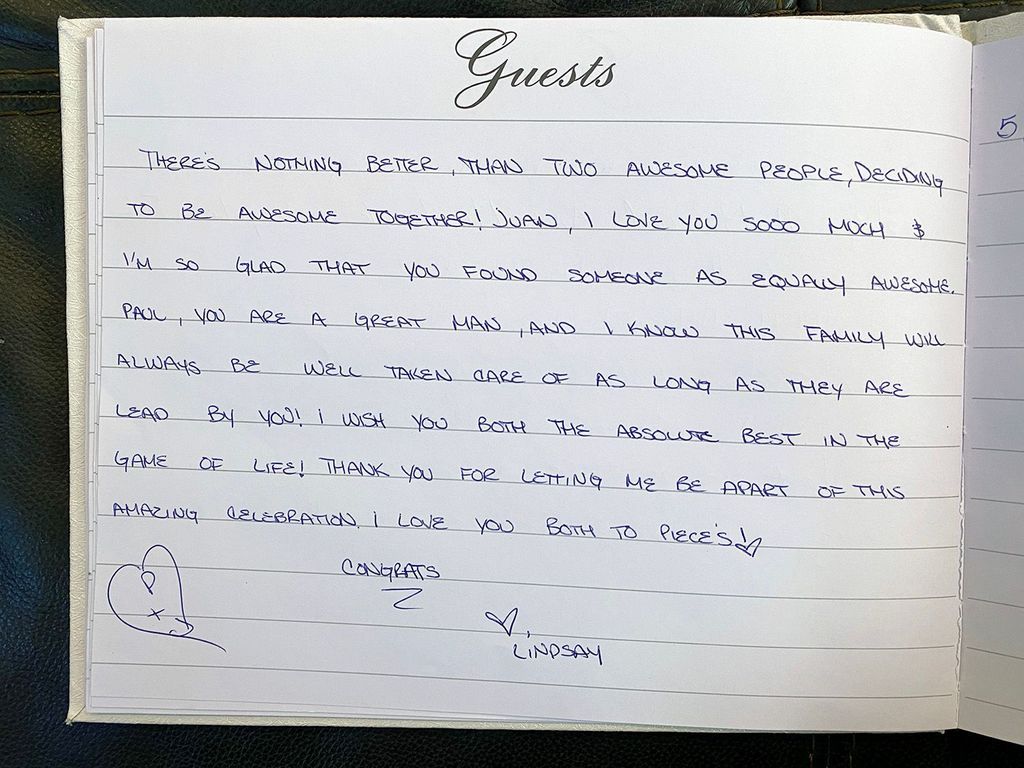 Guests
THERE'S NOTHING BETTER, THAN TWO AWESOME PEOPLE, DECIDING
TO BE AWESOME TOGETHER! JUAN, I LOVE YOU SOOO MUCH &
I'M SO GLAD THAT YOU FOUND SOMEONE AS EQUALLY AWESOME.
PAUL, YOU ARE A GREAT MAN, AND I KNOW THIS FAMILY WILL
ALWAYS BE WELL TAKEN CARE OF AS LONG AS THEY ARE
LEAD BY YOU! I WISH YOU BOTH THE ABSOLUTE BEST IN THE
GAME OF LIFE! THANK YOU FOR LETTING ME BE APART OF THIS
AMAZING CELEBRATION. I LOVE YOU BOTH TO PIECE'S!
CONGRATS
P
x
J
LINDSAY
5